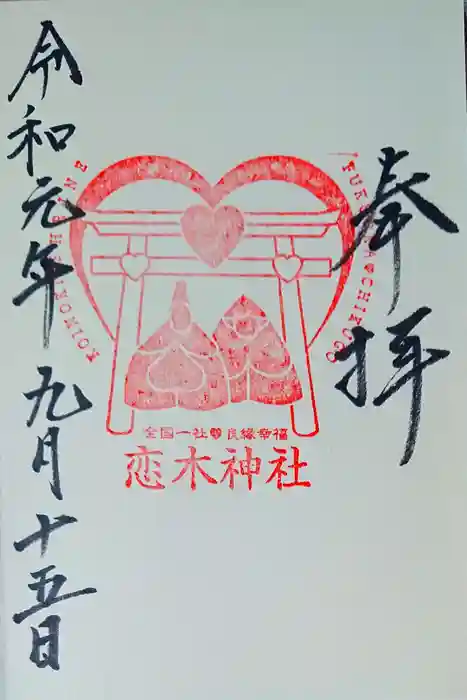 奉拝
FUKUOKA♥CHIKUGO
全国一社♥良縁幸福
恋木神社
KOINOKI SHRINE
令和元年九月十五日